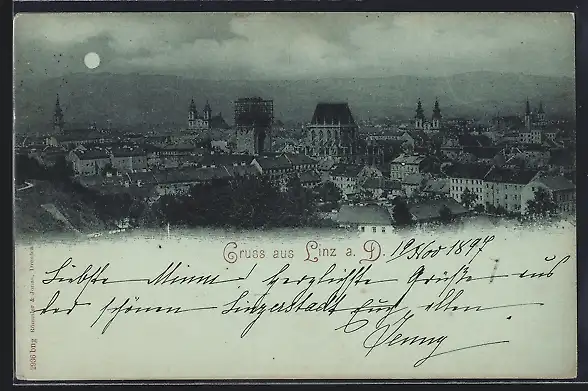 Gruss aus Linz a. D. 19 Nov 1897
Liebste Minna! Herzlichste Grüße aus
der schönen Linzerstadt Euch allen
Jenny
1936 bmg Römmler & Jonas, Dresden